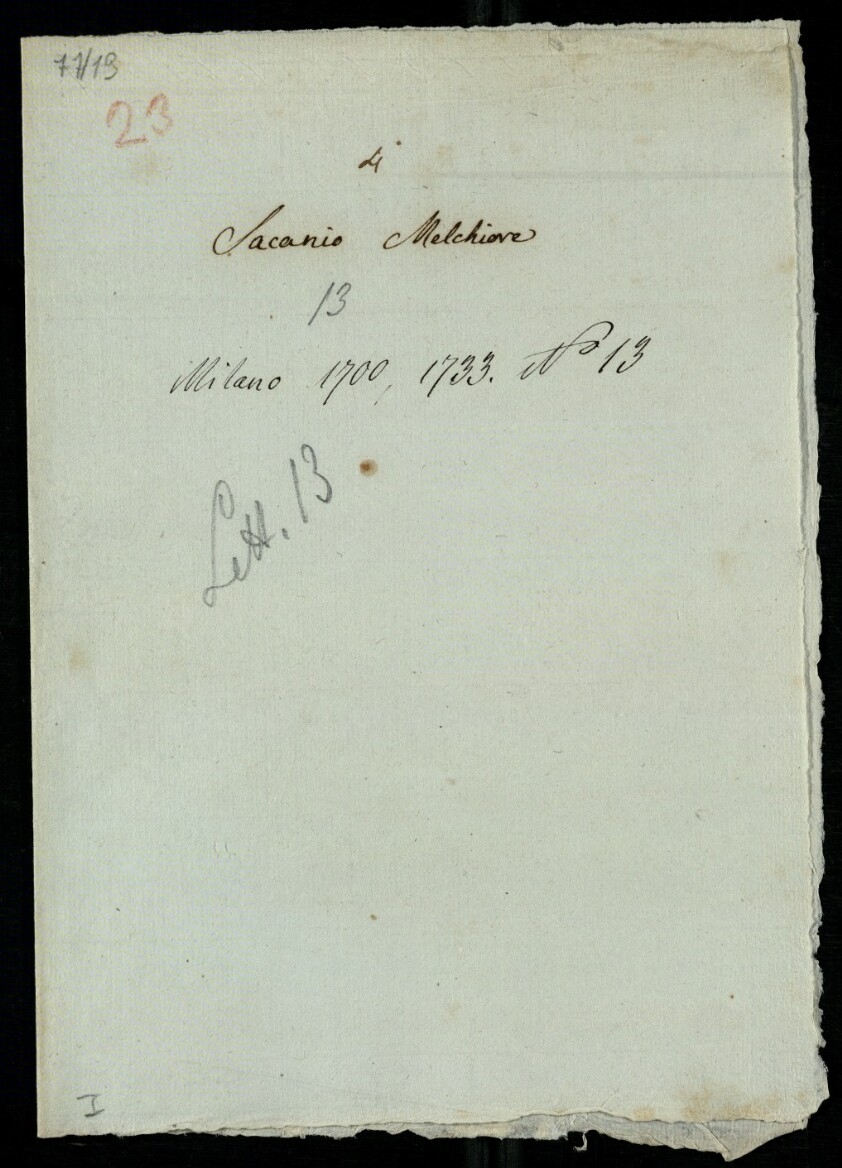 77/19
23
di
Sacanio Melchiore
13
Milano 1700, 1733. No 13
Lett. 13
I